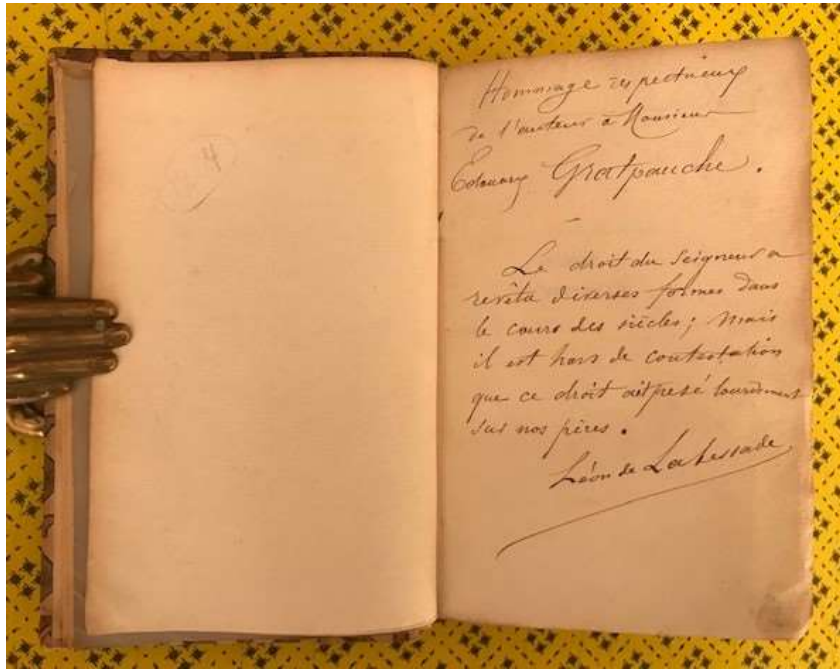 4
Hommage respectueux
de l'auteur a Monsieur
Edouard Gratpauche.
Le droit du Seigneur a
revêtu diverses formes dans
le cours des siècles; mais
il est hors de contestation
que ce droit ait pesé lourdement
sur nos pères.
Léon de Labessade